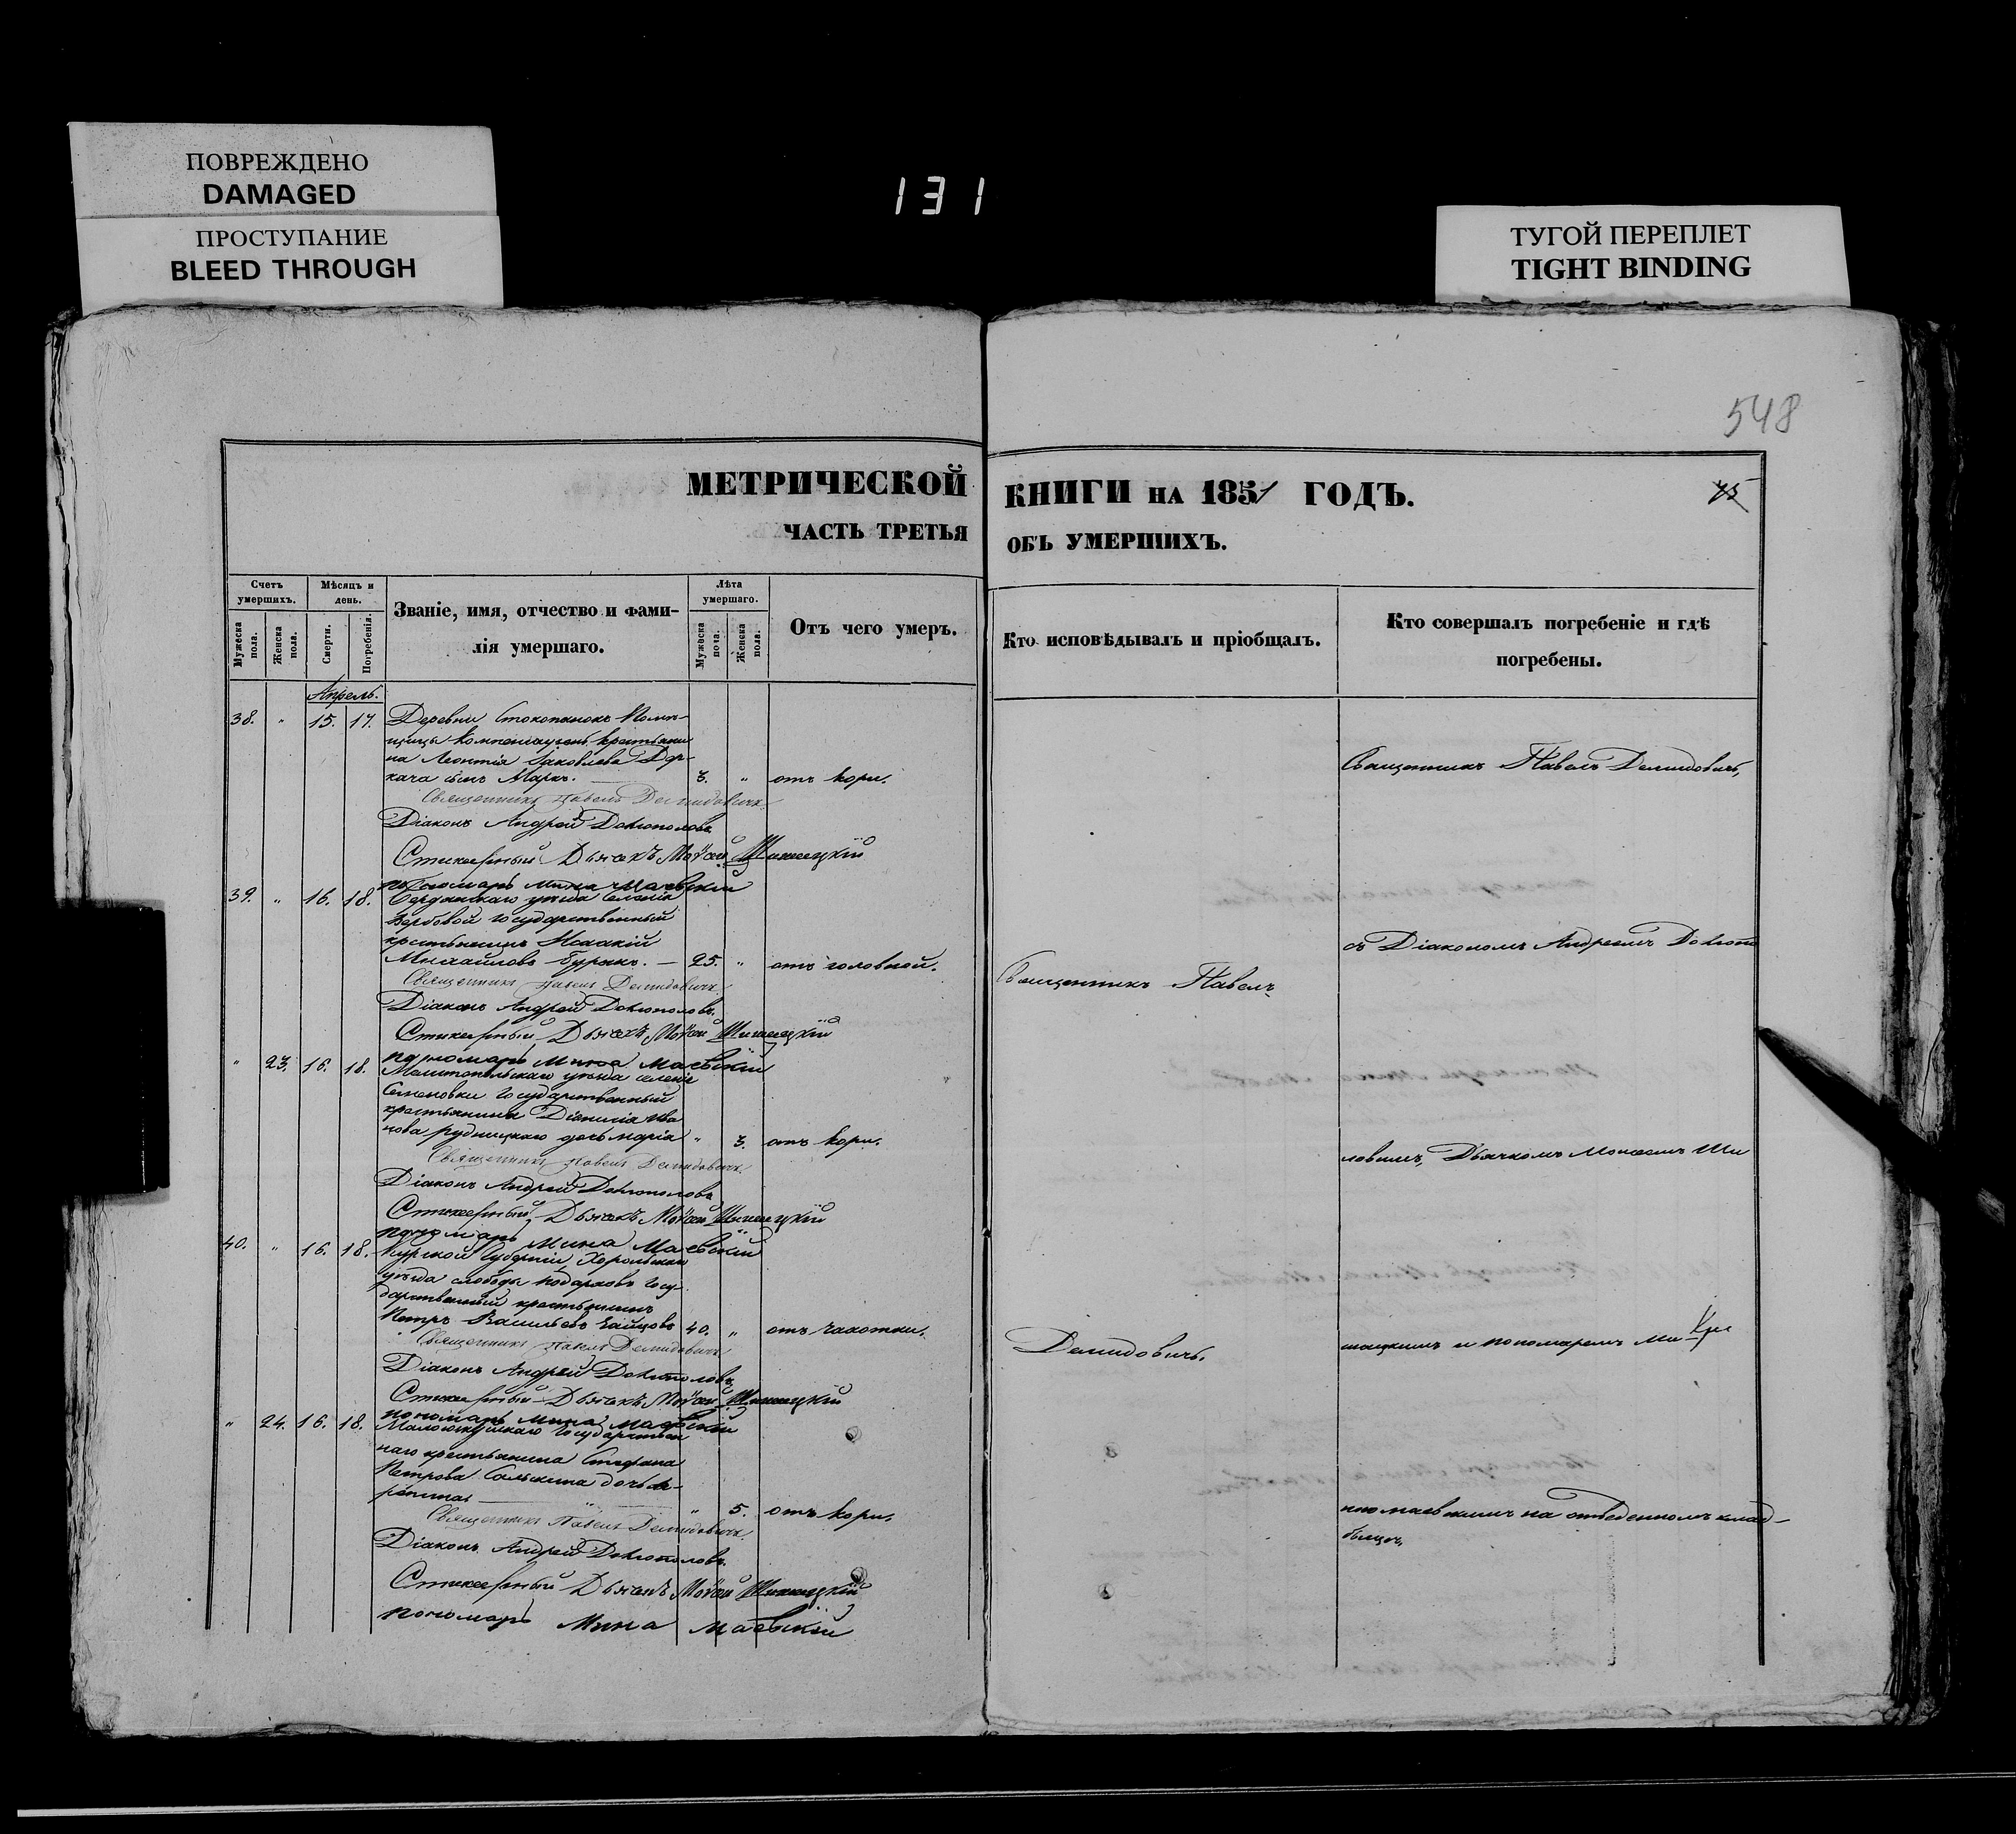 ПОВРЕЖДЕНО
DAMAGED
ПРОСТУПАНИЕ
BLEED THROUGH
131
ТУГОЙ ПЕРЕПЛЕТ
TIGHT BINDING
548
МЕТРИЧЕСКОЙ КНИГИ НА 1851 ГОДЪ.
45
ЧАСТЬ ТРЕТЬЯ ОБЪ УМЕРШИХЪ.
Счетъ умершихъ.
Мужеска пола.
Женска пола.
Мѣсяцъ и день.
Смерти.
Погребенія.
Званіе, имя, отчество и фами-
лія умершаго.
Лѣта умершаго.
Мужеска пола.
Женска пола.
Отъ чего умеръ.
Кто исповѣдывалъ и пріобщалъ.
Кто совершалъ погребеніе и гдѣ
погребены.
Апрель.
38. " 15. 17. Деревни
крестьяни
на Леонтія Яковлева Дер-
кача сынъ Марко. 3. " отъ кори.
Священникъ Павелъ Демидовичъ
Діаконъ Андрей
Стихарный Дьячекъ Моѵсей
пономарь Мина Маевскій
39. " 16. 18. Бердянскаго уѣзда селенія
Вербовой государственный
крестьянинъ Исаакій
Михайловъ Бурякъ. — 25. " отъ головной.
Священникъ Павелъ Демидовичъ
Діаконъ Андрей
Стихарный Дьячекъ Моѵсей
пономарь Мина Маевскій
" 23. 16. 18. Мелитопольскаго уѣзда селенія
Семеновки государственный
крестьянина Діонисія Ива
нова Рудницкаго дочь Марія " 3. отъ кори.
Священникъ Павелъ Демидовичъ
Діаконъ Андрей
Стихарный Дьячекъ Моѵсей
пономарь Мина Маевскій
40. " 16. 18. Курской губерніи,
уѣзда слободы госу-
дарственный крестьянинъ
Петръ Васильевъ Зайцовъ 40. " отъ чахотки.
Священникъ Павелъ Демидовичъ
Діаконъ Андрей
Стихарный Дьячекъ Моѵсей
пономарь Мина Маевскій
" 24. 16. 18. государствен
наго крестьянина Стефана
Петрова дочь
" 5. отъ кори.
Священникъ Павелъ Демидовичъ
Діаконъ Андрей
Стихарный Дьячекъ Моѵсей
пономарь Мина Маевскій
Священникъ Павелъ
Демидовичъ.
Священникъ Павелъ Демидовичъ,
съ Діакономъ Андреемъ
ловымъ, Дьячкомъ Моисеемъ Ши
и пономаремъ Ми
ною Маевскимъ на отведенномъ клад-
бищѣ.